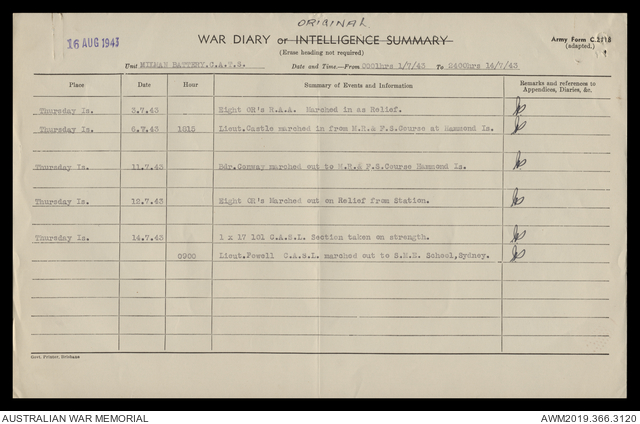 ORIGINAL
16 AUG 1943
WAR DIARY or INTELLIGENCE SUMMARY
Army Form C.2118
(adapted.)
(Erase heading not required)
Unit MILMAN BATTERY.C.A.T.S. Date and Time—From 0001hrs 1/7/43 To 2400hrs 14/7/43
Place Date Hour Summary of Events and Information Remarks and references to Appendices, Diaries, &c.
Thursday Is. 3.7.43 Eight OR's R.A.A. Marched in as Relief.
Thursday Is. 6.7.43 1815 Lieut.Castle marched in from M.R.& F.S.Course at Hammond Is.
Thursday Is. 11.7.43 Bdr.Conway marched out to M.R.& F.S.Course Hammond Is.
Thursday Is. 12.7.43 Eight OR's Marched out on Relief from Station.
Thursday Is. 14.7.43 1 x 17 101 C.A.S.L. Section taken on strength.
0900 Lieut.Powell C.A.S.L. marched out to S.M.E. School,Sydney.
Govt. Printer, Brisbane
AUSTRALIAN WAR MEMORIAL AWM2019.366.3120